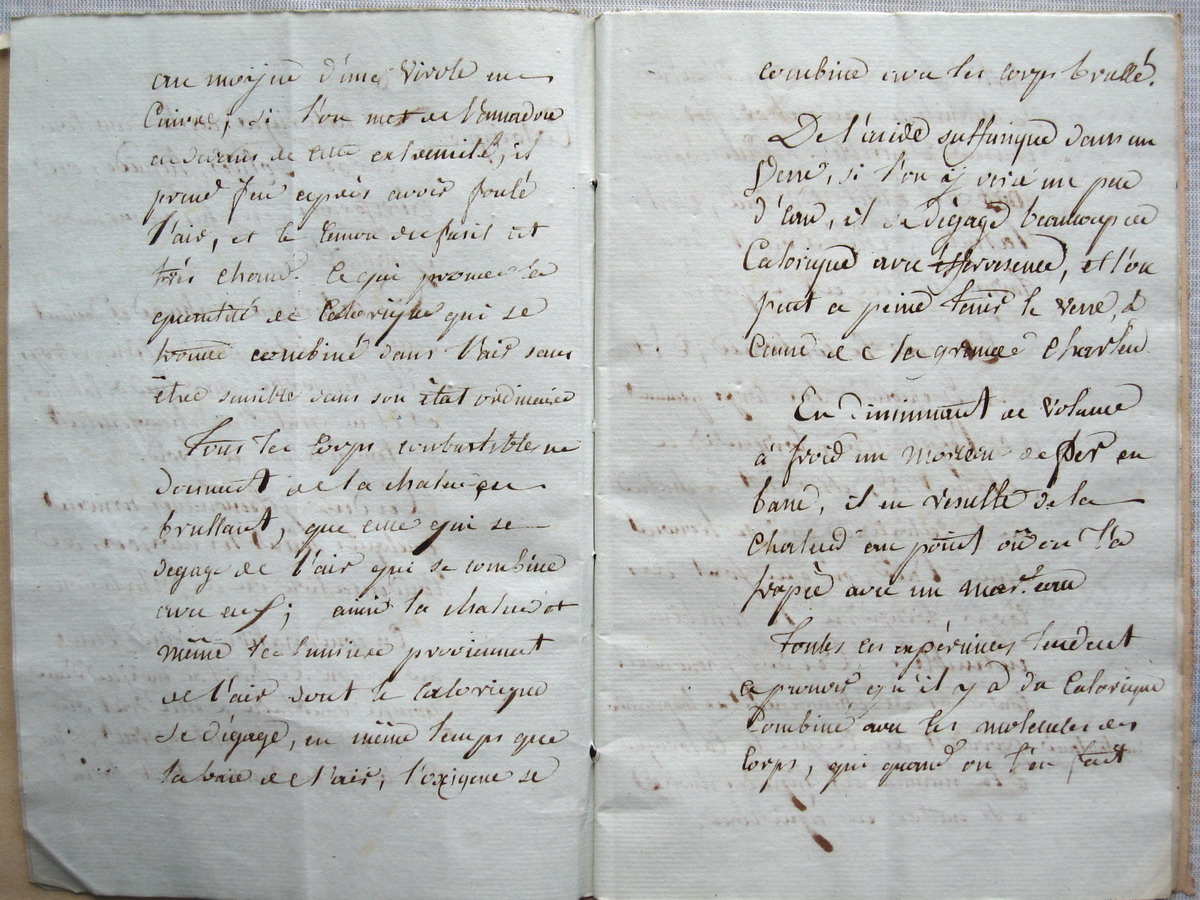 au moyen d'une virole en
Cuivre; si l'on met de l'amadou
au dedans de cette extremité, il
prend feu après avoir foulé
l'air, et le canon de fusil est
très chaud. Ce qui prouve la
quantité de Calorique qui se
trouve combiné dans l'air sans
être sensible dans son état ordinaire
Tous les corps combustible ne
donnent de la chaleur en
brullant, que celle qui se
degage de l'air qui se combine
avec eux; ainsi la chaleur et
même la lumiere proviennent
de l'air dont le calorique
se dégage, en même temps que
la base de l'air, l'oxigene se
combine avec les corps brullé.
De l'acide sulfurique dans un
Verre, si l'on y verse un peu
d'eau, il se dégage beaucoup de
Calorique avec effervesence, et l'on
peut a peine tenir le verre, à
cause de la grande chaleur.
En diminuant de volume
à froid un morceau de fer en
barre, il en resulte de la
chaleur au point où on l'a
frapé avec un marteau
Toutes ces expériences tendent
a prouver qu'il y a du Calorique
Combiné avec les molecules des
Corps, qui quand on l'en fait